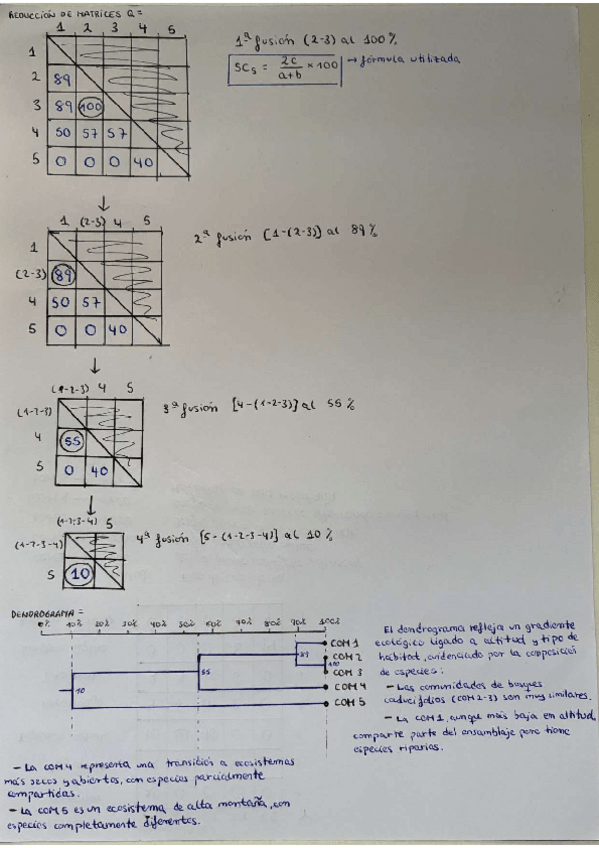 REDUCCIÓN DE MATRICES Q =
1 2 3 4 5
1
2 89
3 89 100
4 50 57 57
5 0 0 0 40
1ª fusión (2-3) al 100%
SCs = 2c / a+b × 100 → fórmula utilizada
1 (2-3) 4 5
1
(2-3) 89
4 50 57
5 0 0 40
2ª fusión [1-(2-3)] al 89%
(1-2-3) 4 5
(1-2-3)
4 55
5 0 40
3ª fusión [4-(1-2-3)] al 55%
(1-2-3-4) 5
(1-2-3-4)
5 10
4ª fusión [5-(1-2-3-4)] al 10%
DENDROGRAMA =
0% 10% 20% 30% 40% 50% 60% 70% 80% 90% 100%
COM 1
COM 2
COM 3
COM 4
COM 5
100
55
10
El dendrograma refleja un gradiente
ecológico ligado a altitud y tipo de
habitat, evidenciado por la composición
de especies:
- Las comunidades de bosques
caducifolios (COM 2-3) son muy similares.
- La COM 1, aunque más baja en altitud,
comparte parte del ensamblaje pero tiene
especies riparias.
- La COM 4 representa una transición a ecosistemas
más secos y abiertos, con especies parcialmente
compartidas.
- La COM 5 es un ecosistema de alta montaña, con
especies completamente diferentes.